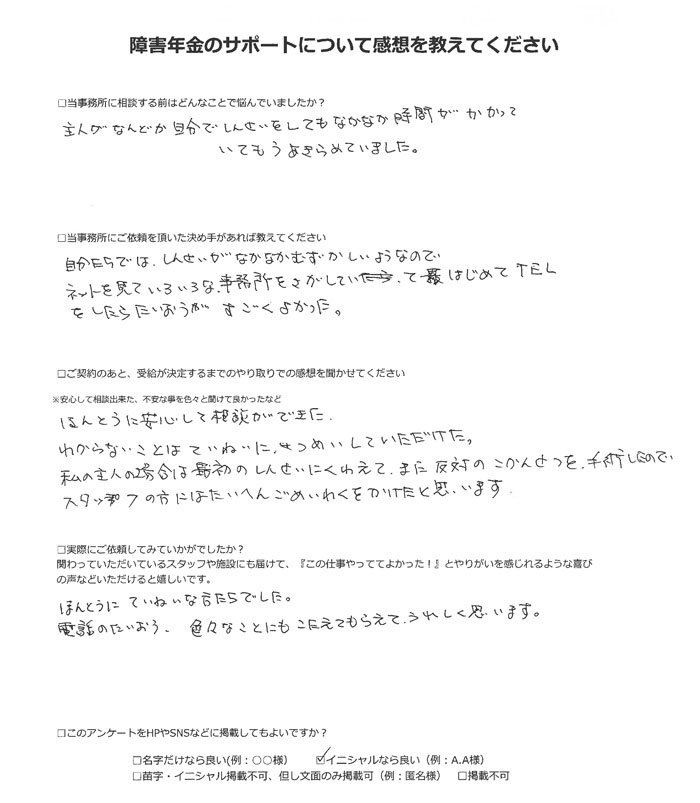 障害年金のサポートについて感想を教えてください
□当事務所に相談する前はどんなことで悩んでいましたか？
主人がなんどか自分でしんせいをしてもなかなか時間がかかって
いてもうあきらめていました。
□当事務所にご依頼を頂いた決め手があれば教えてください
自分たちでは、しんせいがなかなかむずかしいようなので
ネットを見ていろいろな、事務所をさがしてい、て はじめてTEL
をしたらたいおうが すごくよかった。
□ご契約のあと、受給が決定するまでのやり取りでの感想を聞かせてください
※安心して相談出来た、不安な事を色々と聞けて良かったなど
ほんとうに安心して相談ができた.
わからないことはていねいに、せつめいしていただけた。
私の主人の場合は最初のしんせいにくわえて、また反対のこかんせつを、手術したので
スタッフの方にはたいへんごめいわくをかけたと思います.
□実際にご依頼してみていかがでしたか？
関わっていただいているスタッフや施設にも届けて、『この仕事やっててよかった！』とやりがいを感じれるような喜び
の声などいただけると嬉しいです。
ほんとうに ていねいな方たちでした。
電話のたいおう、 色々なことにもこたえてもらえて、うれしく思います。
□このアンケートをHPやSNSなどに掲載してもよいですか？
□名字だけなら良い(例：〇〇様） ☑イニシャルなら良い（例：A.A様）
□苗字・イニシャル掲載不可、但し文面のみ掲載可（例：匿名様） □掲載不可